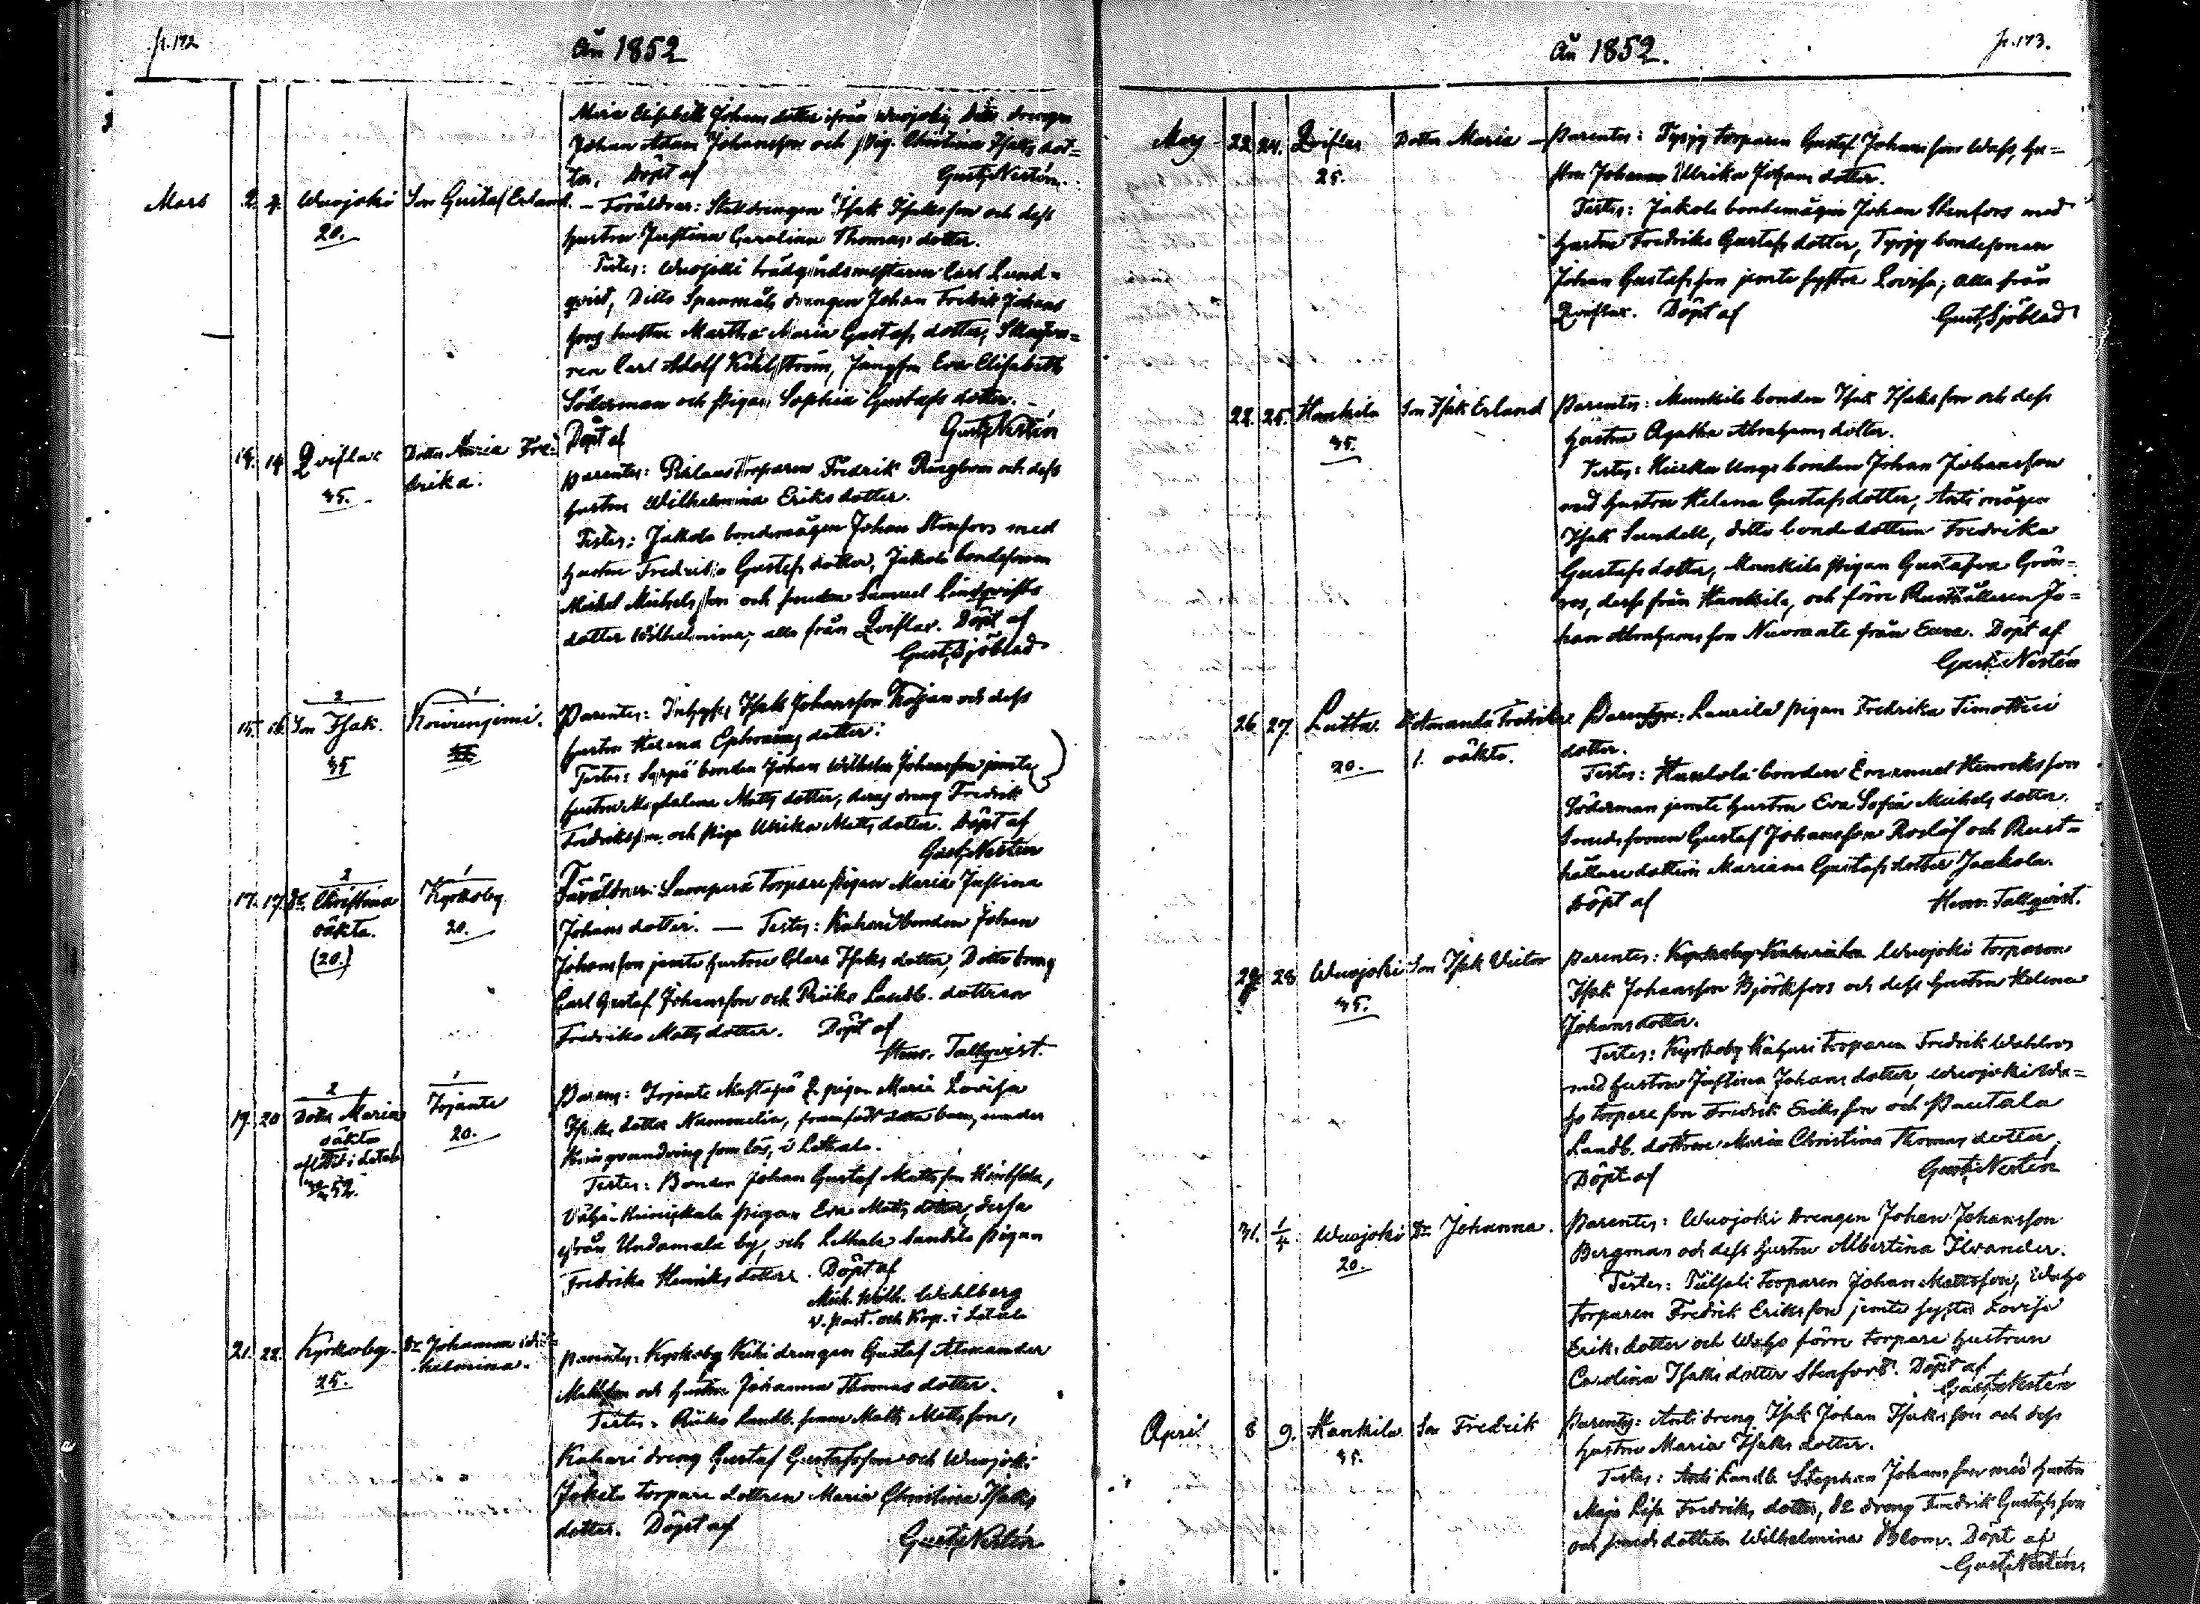 p. 172
Aň 1852
Maria Elisabeth Johans dotter ifrån Wuojoki, Ditto drengen
Johan Adam Johansson och Pig. Christina Isaks dot=
ter. Döpt af Gust. Nestén.
Mars 2. 4. Wuojoki Son Gustaf Erland. – Föräldrar: Stalldrengen Isak Isaksson och dess
20. hustru Justina Carolina Thomas dotter.
Testes: Wuojoki trädgårdsmestaren Carl Lund=
qvist, Ditto Spanmåls drengen Johan Fredrik Johans
sons hustru Martha Maria Gustafs dotter,
Carl Adolf Kihlström, Jungfru Eva Elisabeth
Söderman och pigan Sophia Gustafs dotter. –
Döpt af Gust. Nestén
14. 14 Qviflax Dotter Maria Fre=
35. drika.
Parentes: torparen Fredrik Ringbom och dess
hustru Wilhelmina Eriks dotter.
Testes: Jakola bondemågen Johan Stenfors med
hustru Fredrika Gustafs dotter, Jakola bondesonen
Mickel Mickelsson och Samuel Lindqvists
dotter Wilhelmina; alla från Qviflax. Döpt af
Gust. Sjöblad
2 1
15. 16. Son Isak. Koivuniemi. Parentes: Inhyses Isak Johansson Trojan och dess
35 hustru Helena dotter.
Testes: bonden Johan Wilhelm Johansson jemte
hustru Magdalena Matts dotter, deras dreng Fredrik
Fredriksson och piga Ulrika Matts dotter. Döpt af
Gust. Nestén
2 1
17. 17. Dr. Christina Kyrkoby Föräldrar: Lavapera Torpare pigan Maria Justina
oäkta. 20. Johans dotter. — Testes: Kahari bonden Johan
(20.) Johansson jemte hustru Clara Isaks dotter, Ditto dreng
Carl Gustaf Johansson och Riiko Landb. dottren
Fredrika Matts dotter. Döpt af
Henr. Tallqvist.
2 1
19. 20 Dotter Maria Irjante Parens: Irjante pigan Maria Lovisa
oäkta 20. Isaks dotter, framfödt detta barn, under
kringvandring som lös, i Letala.
Testes: Bonden Johan Gustaf Mattsson
pigan Eva Matts dotter, dessa
från Undamala by, och Letala pigan
Fredrika Henriks dotter. Döpt af
Mich. Wilh. Wahlberg
v. Past. och Kap. i Letala
21. 22. Kyrkoby. Dr Johanna Wil=
25. helmina.
Parentes: Kyrkoby Kiki drengen Gustaf Almander
Mattsson och hustru Johanna Thomas dotter.
Testes: Riiko Landb. sonen Matts Mattsson,
Kahari dreng Gustaf Gustafsson och Wuojoki
Jokela torpare dottren Maria Christina Isaks
dotter. Döpt af Gust. Nestén
Aň 1852. p. 173.
Mars 22 24. Qviflax Dotter Maria – Parentes: Tyrjy torparen Gustaf Johansson Wass, hu=
25. stru Johanna Ulrika Johans dotter.
Testes: Jakola bondemågen Johan Stenfors med
hustru Fredrika Gustafs dotter, Tyrjy bondesonen
Johan Gustafsson jemte syster Lovisa; alla från
Qviflax. Döpt af Gust. Sjöblad
22. 25. Hankila Son Isak Erland Parentes: Munkila bonden Isak Isaksson och dess
35. hustru Agatha Abrahams dotter.
Testes: unge bonden Johan Johansson
med hustru Helena Gustafs dotter, Anti mågen
Isak Sundell, ditto bonde dottren Fredrika
Gustafs dotter, Munkila pigan Gustafva Grön=
ros, dessa från Hankila, och förre Rusthållaren Jo=
han Abrahamsson från Eura. Döpt af
Gust. Nestén
26 27. Lutta. D. Amanda Fredrika Parens: Laurila pigan Fredrika Timothei
20. oäkta. dotter.
Testes: bonden Emanuel Henriksson
Söderman jemte hustru Eva Sofia Mickels dotter,
smedssonen Gustaf Johansson Roslöf och Rust=
hållare dottren Mariana Gustafs dotter Jaakola.
Döpt af Henr. Tallqvist.
28 Wuojoki Son Isak Victor Parentes: Wuojoki torparen
35. Isak Johansson Björkfors och dess hustru Helena
Johans dotter.
Testes: Kyrkoby Kahari torparen Fredrik Wahlroos
med hustru Justina Johans dotter, Wuojoki Wa=
ho torpare son Fredrik Eriksson och Pautala
Landb. dottren Maria Christina Thomas dotter.
Döpt af Gust. Nestén
31. 1/4. Wuojoki Dr Johanna. Parentes: Wuojoki drengen Johan Johansson
20. Bergman och dess hustru Albertina Ilvander.
Testes: torparen Johan Mattsson, Waho
torparen Fredrik Eriksson jemte syster Lovisa
Eriks dotter och Waho förre torpare hustrun
Carolina Isaks dotter Stenfors. Döpt af
Gust. Nestén
April 8 9. Hankila Son Fredrik Parentes: Anti dreng Isak Johan Isaksson och dess
35. hustru Maria Isaks dotter.
Testes: Anti Landb. Stephan Johansson med hustru
Maja Lisa Fredriks dotter, dreng Fredrik Gustafsson
och smeds dottren Wilhelmina Blom. Döpt af
Gust. Nestén